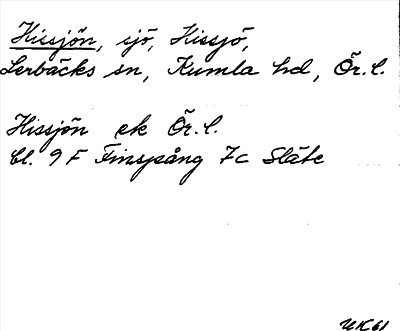 Hissjön, sjö, Hissjö,
Lerbäcks sn, Kumla hd, Ör. l.
Hissjön ek Ör. l.
Bl. 9 F Finspång 7c Släte
UK 61